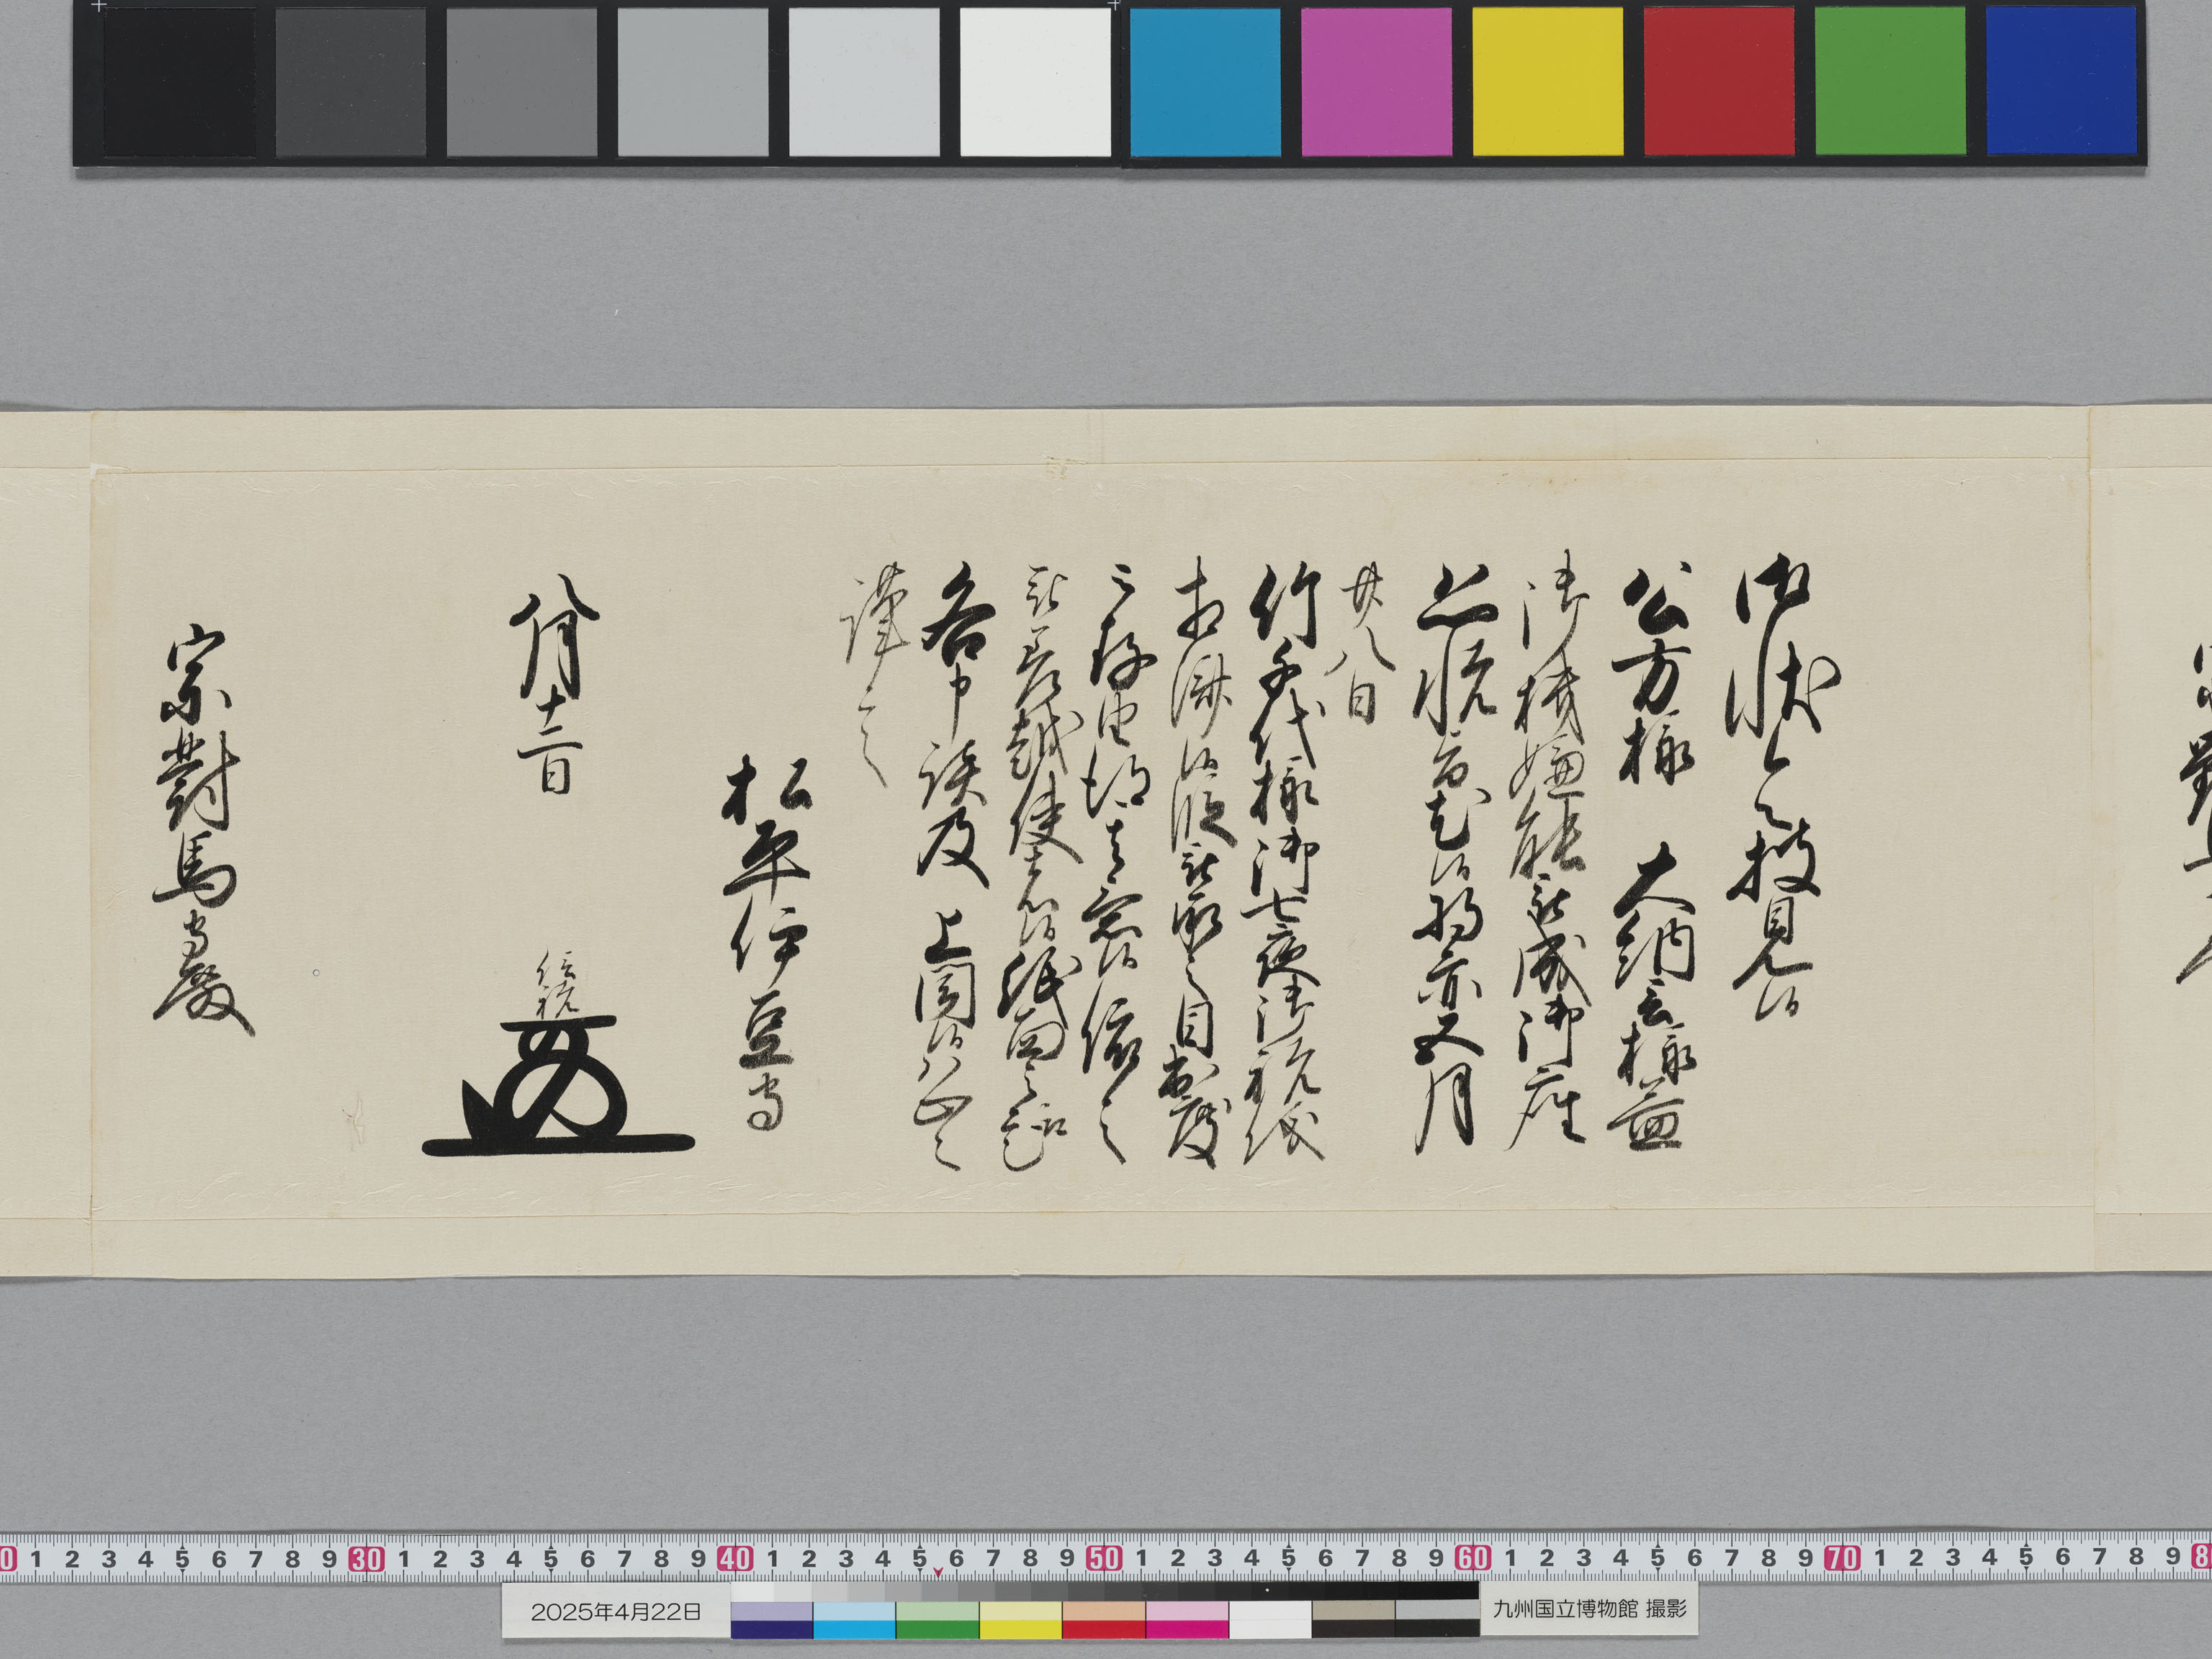 御状令披見候
公方様 大納言様益
御機嫌能被成御座
恐悦旨尤候将亦又月
廿八日
竹千代様御七夜御祝儀
相済候段被承之目出度
被存由得其意候依之
被差越使者候紙面之趣
各申談及 上聞候恐々
謹言
松平伊豆守
八月十二日
信祝
宗對馬守殿
0 1 2 3 4 5 6 7 8 9 30 1 2 3 4 5 6 7 8 9 40 1 2 3 4 5 6 7 8 9 50 1 2 3 4 5 6 7 8 9 60 1 2 3 4 5 6 7 8 9 70 1 2 3 4 5 6 7 8 9 8
2025年4月22日
九州国立博物館 撮影